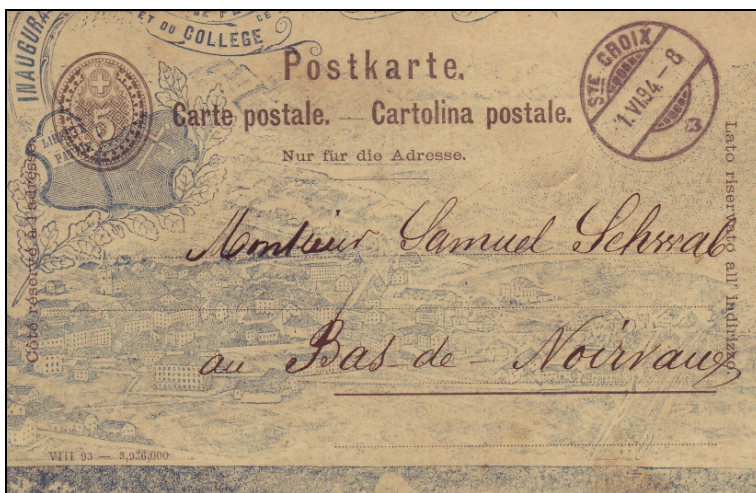 INAUGURA
ET DU COLLEGE
Postkarte.
STE CROIX
1.VI.94-8
Carte postale. — Cartolina postale.
5
Nur für die Adresse.
Côté réservé à l'adresse.
Lato riservato all' indirizzo
Monsieur Samuel Schwab
au Bas-de-Noirvaux
VIII 93 — 3,936,000